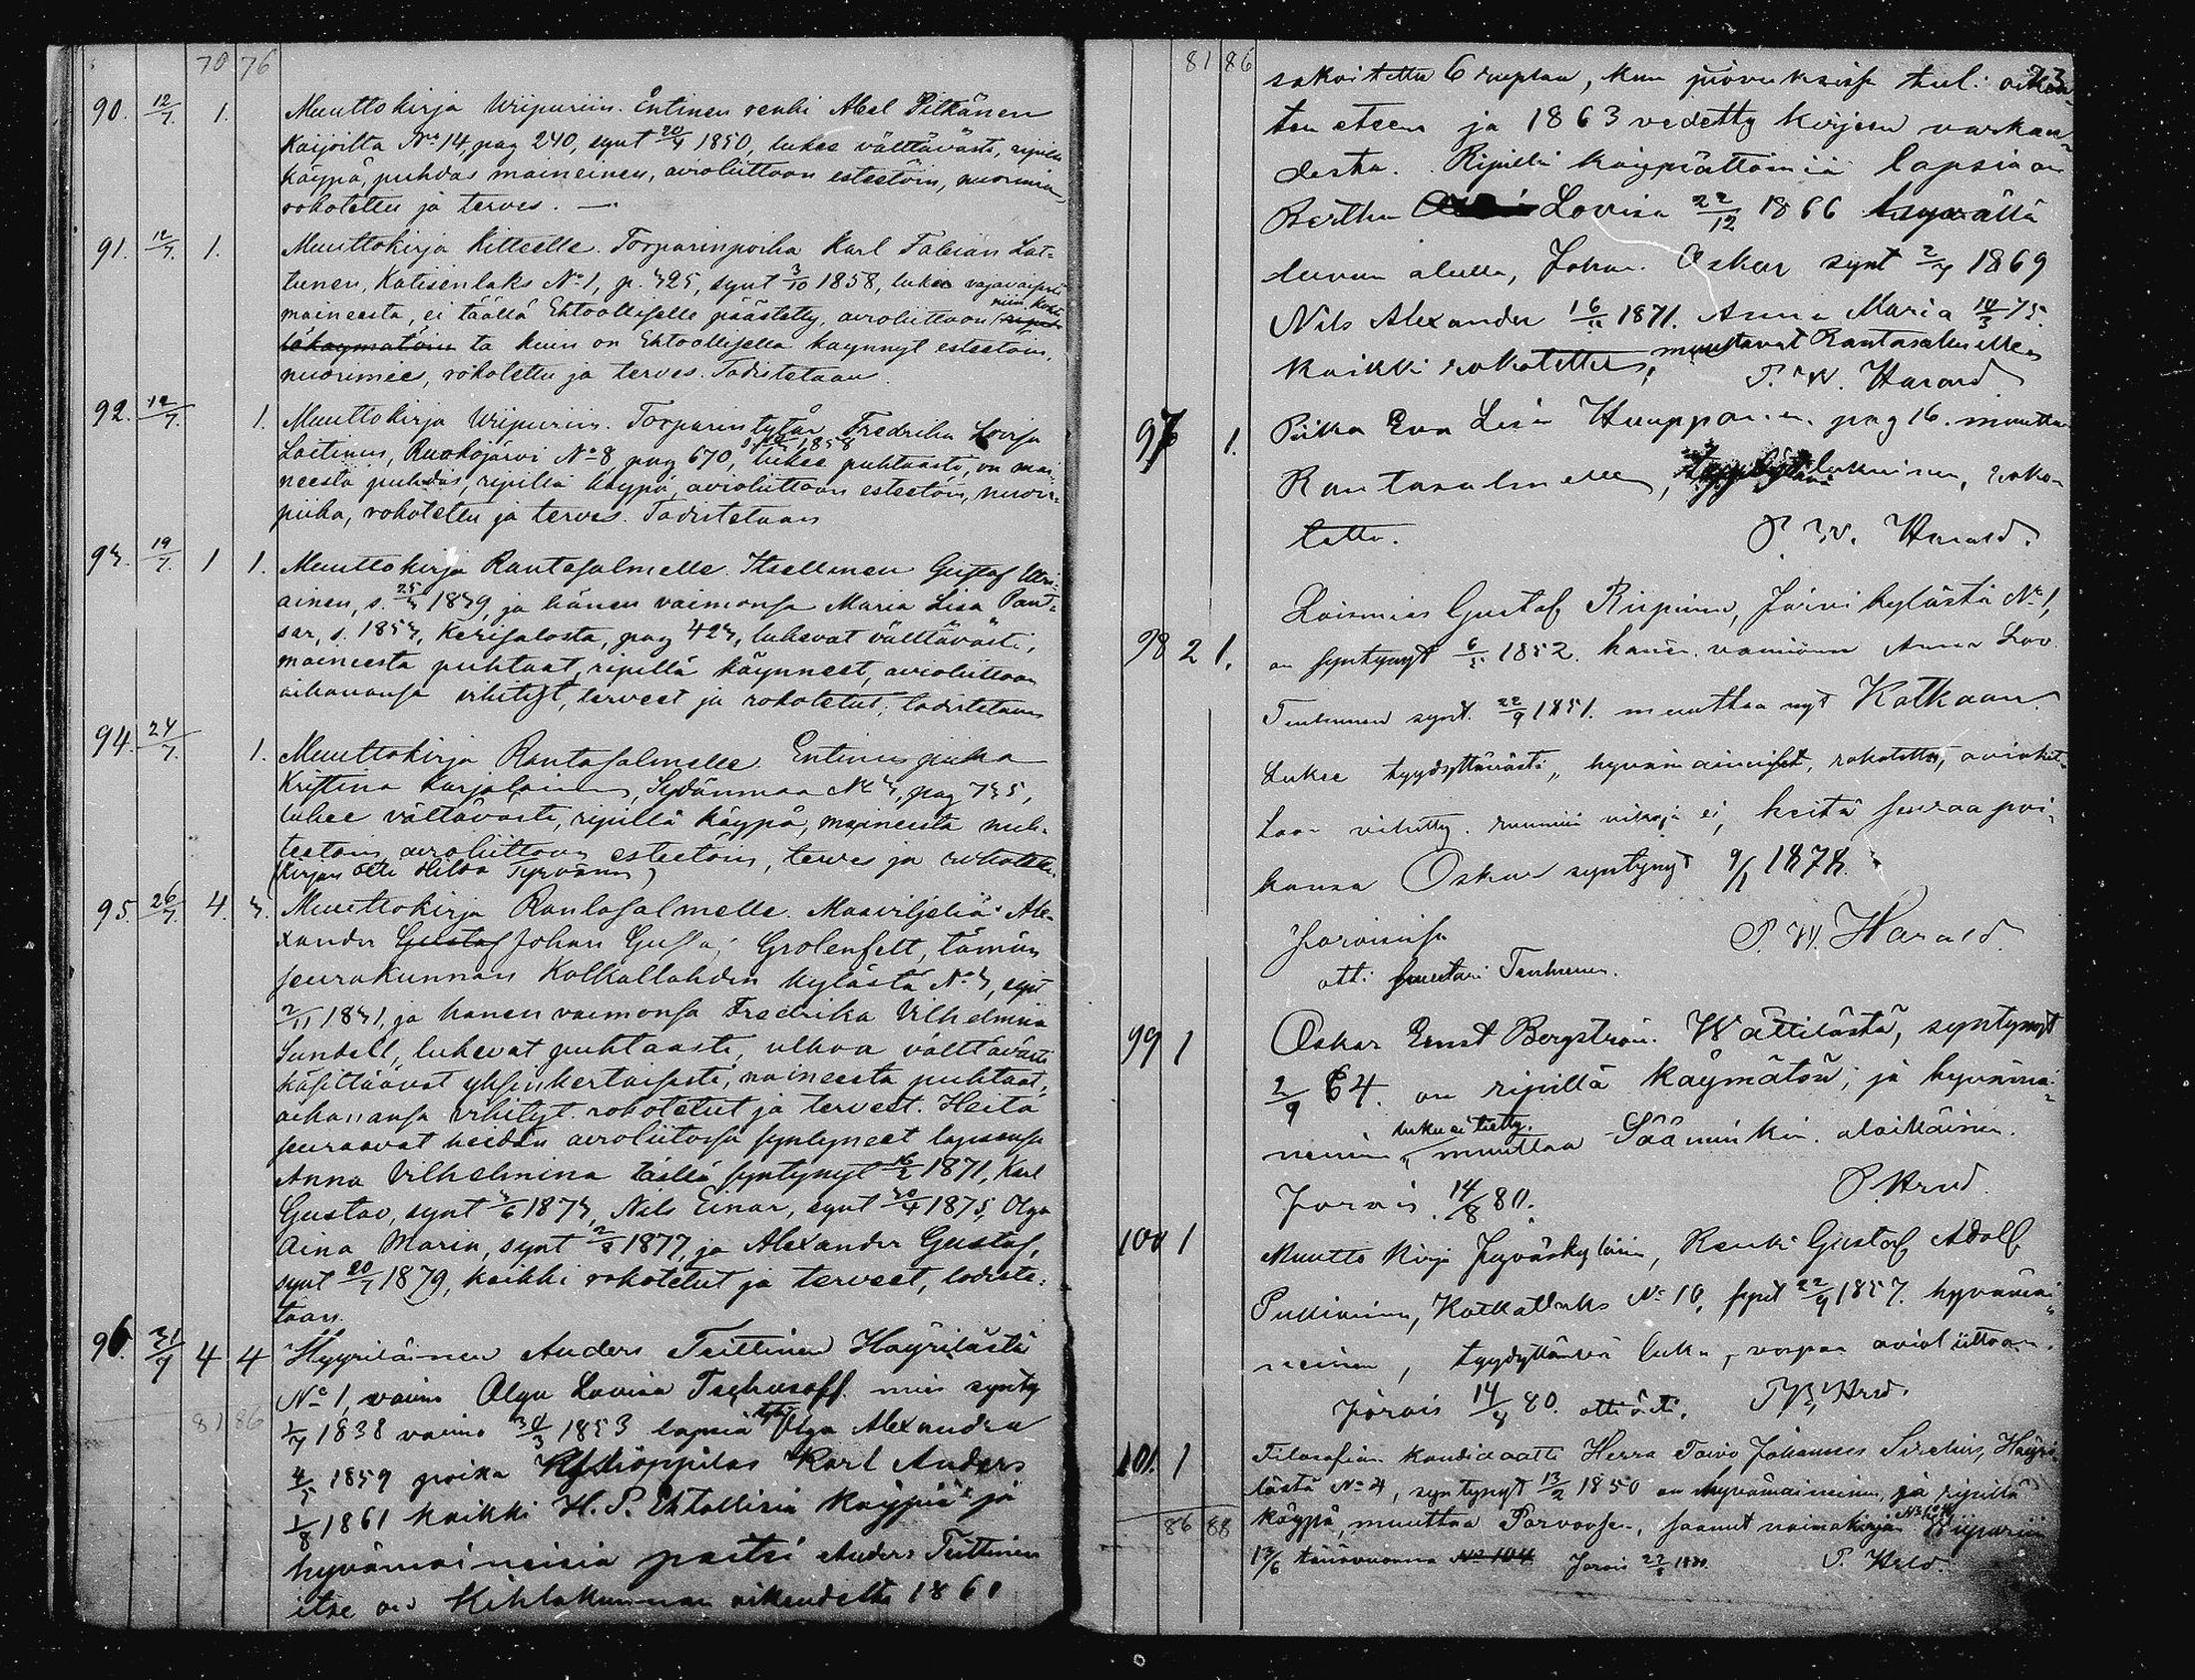 70 76
90. 12/7. 1. Muuttokirja Wiipuriin. Entinen renki Abel Pitkänen
Kaijoilta No 14, pag 240, synt 20/4 1850, lukee välttävästi, ripillä
käypä, puhdas maineinen, avioliittoon esteetöin, nuorimies
rokotettu ja terves. —
91. 12/7. 1. Muuttokirja Kitteelle. Torparinpoika Karl Fabian Lat-
tunen, Katisenlaks No 1, p. 325, synt 3/10 1858, lukee vajavaisesti
maineesta, ei täällä Ehtoolliselle päästetty, avioliittoon niin kohta
ta kuin on Ehtoollisella käynnyt esteetöin,
nuorimies, rokotettu ja terves. Todistetaan.
92. 12/7. 1. Muuttokirja Wiipuriin. Torparin tytär Fredrika Lovisa
1858
Laitinen, Ruokojärvi No 8 pag 670, lukee puhtaasti, on mai-
neesta puhdas, ripillä käypä, avioliittoon esteetöin, nuori-
piika, rokotettu ja terves. Todistetaan
93. 19/7. 1 1. Muuttokirja Rantasalmelle. Itsellinen Gustaf
ainen, s. 25/3 1839, ja hänen vaimonsa Maria Lisa Pant-
sar, s. 1853, Kerisalosta, pag 423, lukevat välttävästi,
maineesta puhtaat, ripillä käynneet, avioliittoon
aikanansa vihityt, terveet ja rokotetut, todistetaan
94. 24/7. 1. Muuttokirja Rantasalmelle. Entinen piika
Kristina Karjalainen, Sydänmaa No 3, pag 735,
lukee välttävästi, ripillä käypä, maineesta nuh-
teetoin, avioliittoon esteetöin, terves ja rokotettu.
(Kirjan otti Hilda Tyrväinen)
95. 26/7. 4. 3. Muuttokirja Rantasalmelle. Maaviljeliä Ale-
xander Gustaf Johan Gustaf Grotenfelt, tämän
seurakunnan Kolkallahden kylästä No 3, synt
2/11 1831, ja hänen vaimonsa Fredrika Vilhelmina
Sundell, lukevat puhtaasti, ulkoa välttävästi
käsittäävät yksinkertaisesti, maineesta puhtaat,
aikanansa vihityt. rokotetut ja terveet. Heitä
seuraavat heidän avioliitossa syntyneet lapsensa
Anna Vilhelmina täällä syntynyt 16/2 1871, Karl
Gustav, synt 3/6 1873, Nils Einar, synt 30/4 1875, Olga
Aina Maria, synt 2/8 1877, ja Alexander Gustaf,
synt 20/7 1879, kaikki rokotetut ja terveet, todiste-
taan.
96. 31/7 4 4 Hyyriläinen Anders Teittinen Häyrilästä
No 1, vaimo Olga Lovisa mies synty
81 86 1/7 1838 vaimo 1853 lapsia tytär Olga Alexandra
4/5 1859 poika Karl Anders
1/8 1861 kaikki H. P. Ehtollisia käypiä ja
hyvämaineisia paitsi Anders Teittinen
itse on Kihlakunnan oikeudelta 1861
81 86
sakoitettu 6 ruplaa, kun juovuksissa tul: oikeu-
ten eteen ja 1863 vedetty kirjaan varkau-
desta. Ripillä käypäättömiä lapsia on
Bertha Lovisa 22/12 1866 hyvällä
luvun alulla, Johan Oskar synt 2/7 1869
Nils Alexander 16/11 1871. Anna Maria 10/3 75.
kaikki rokotettu, muuttavat Rantasalmelle
P. W. Harald
97 1. Piika Eva Lisa Huupponen pag 16. muuttaa
Rantasalmelle, lukuinen, roko-
tettu.
P. W. Harald.
Loismies Gustaf Riipinen, Järvikylästä No 1,
98 2 1. on syntynyt 6/5 1852. hänen vaimonsa Anna Lov.
Tenhunen synt. 22/9 1851. muuttaa nyt Kotkaan.
Lukee tyydyttäväisesti, hyvämaineiset, rokotettu, avioliit-
toon vihitty. ruumiin vikoja ei, heitä seuraa poi-
kansa Oskar syntynyt 9/1 1878.
Joroisissa P. W. Harald.
otti Tenhunen.
99 1 Oskar Ernst Bergström. Wättilästä, syntynyt
2/9 64. on ripillä käymätön, ja hyvämai-
luku ei tietty.
neinen, muuttaa Sääminkiin. alaikäinen.
Jorois 14/8 80. P. Hrld.
100 1 Muutto kirja Jyväskylään, Renki Gustaf Adolf
Pulliainen, Kotkatlaks No 10, synt 22/9 1857. hyvämai-
neinen, tyydyttäväin luku, vapaa avioliittoon.
Jorois 14/8 80. otti äiti. P. W. Hrld.
101. 1 Filosofian kandidaatti Herra Toivo Johannes Sirelius, Häyri-
lästä No 4, syntynyt 13/2 1850 on hyvämaineinen, ja ripillä
86 88 käypä, muuttaa Porvoosen, saanut naimakirjan Wiipuriin
13/6 tänävuonna No 104 Jorois 22/8 1880. P. Hrld.